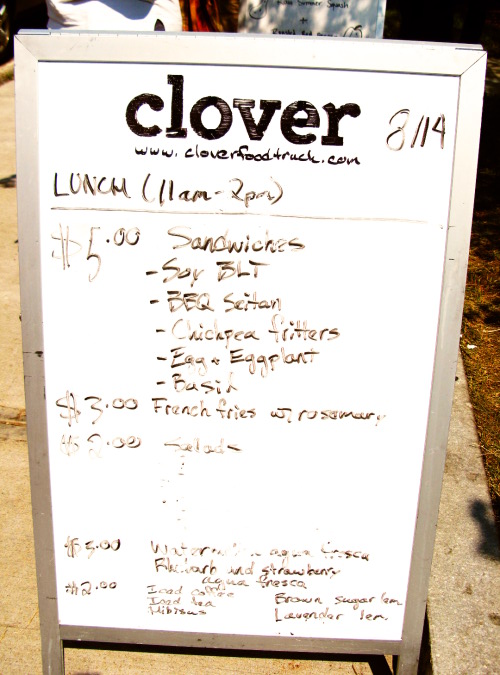 clover 8/14
www.cloverfoodtruck.com
LUNCH (11am-2pm)
$5.00 Sandwiches
- Soy BLT
- BBQ Seitan
- Chickpea fritters
- Egg + Eggplant
- Basil
$3.00 French fries w/ rosemary
$2.00 Salads
$3.00 Watermelon agua fresca
Rhubarb and strawberry
agua fresca
$2.00 Iced coffee Brown sugar lem
Iced tea
Hibiscus Lavender lem.